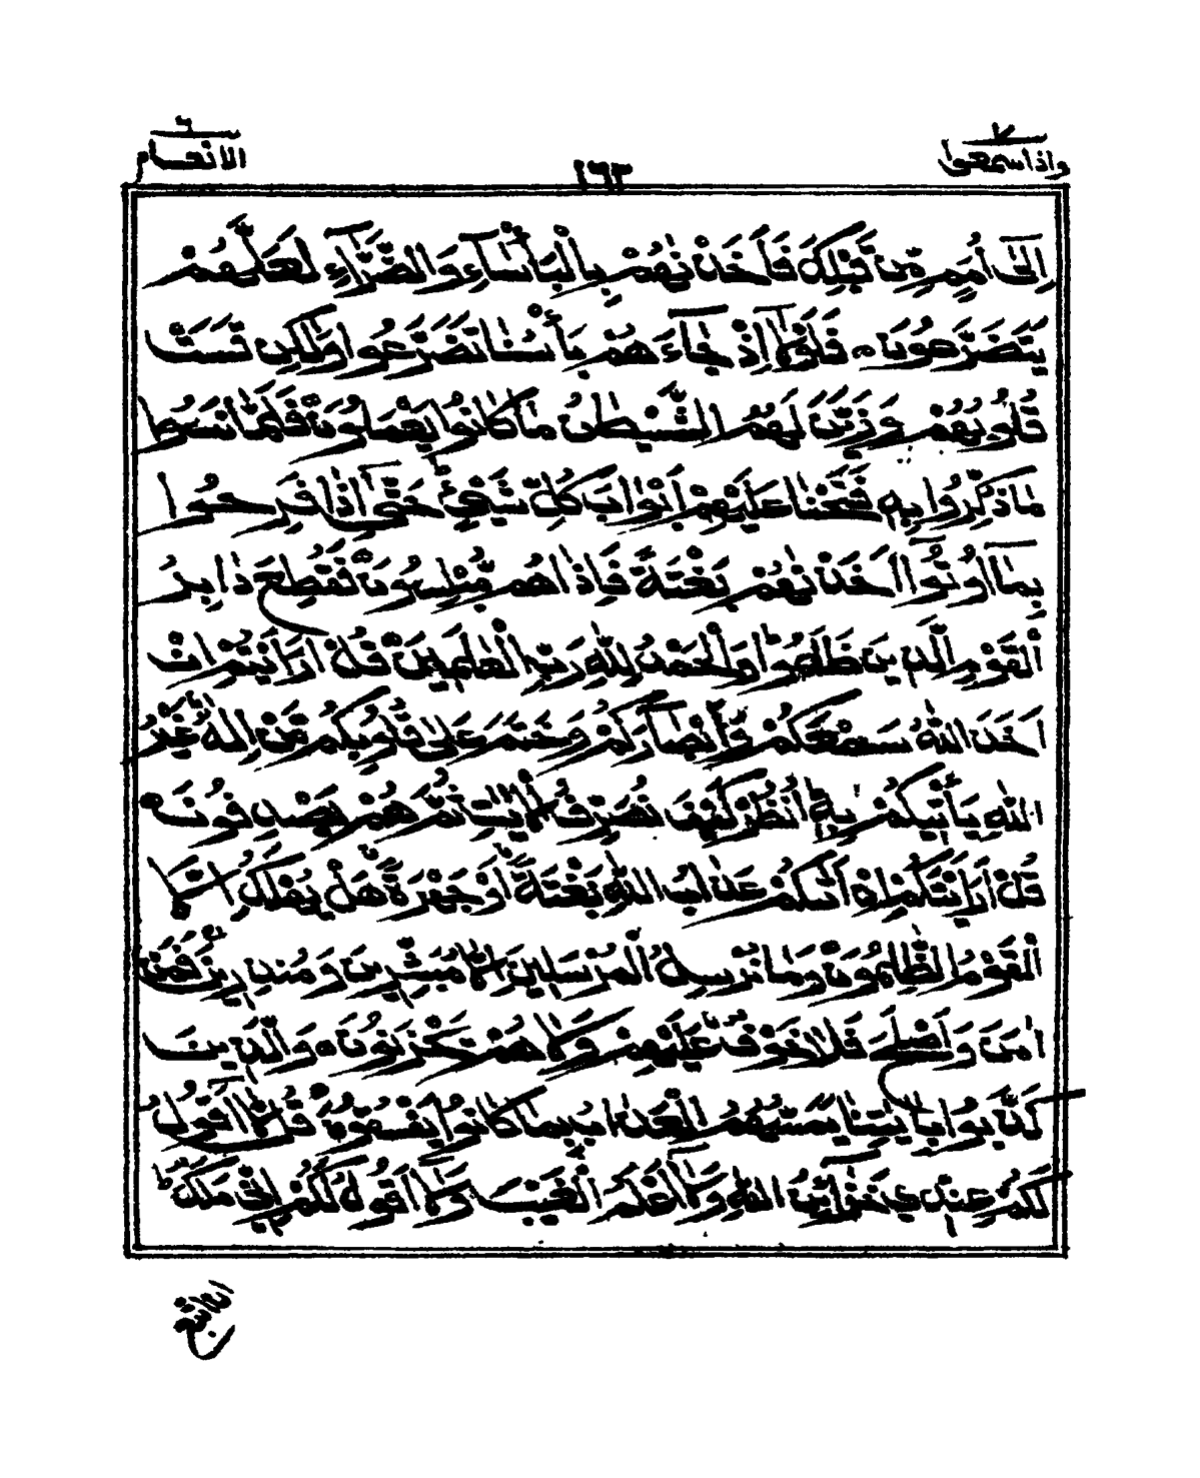 واذاسمعوا ٧
١٦٣
الانعام ٦
اِلٰٓى اُمَمٍ مِّنْ قَبْلِكَ فَاَخَذْنٰهُمْ بِالْبَاْسَآءِ وَالضَّرَّآءِ لَعَلَّهُمْ
يَتَضَرَّعُوْنَ ۝ فَلَوْلَآ اِذْ جَآءَهُمْ بَاْسُنَا تَضَرَّعُوْا وَلٰكِنْ قَسَتْ
قُلُوْبُهُمْ وَزَيَّنَ لَهُمُ الشَّيْطٰنُ مَا كَانُوْا يَعْمَلُوْنَ ۝ فَلَمَّا نَسُوْا
مَا ذُكِّرُوْا بِهٖ فَتَحْنَا عَلَيْهِمْ اَبْوَابَ كُلِّ شَيْءٍ حَتّٰٓى اِذَا فَرِحُوْا
بِمَآ اُوْتُوْٓا اَخَذْنٰهُمْ بَغْتَةً فَاِذَا هُمْ مُّبْلِسُوْنَ ۝ فَقُطِعَ دَابِرُ
الْقَوْمِ الَّذِيْنَ ظَلَمُوْا وَالْحَمْدُ لِلّٰهِ رَبِّ الْعٰلَمِيْنَ ۝ قُلْ اَرَءَيْتُمْ اِنْ
اَخَذَ اللّٰهُ سَمْعَكُمْ وَاَبْصَارَكُمْ وَخَتَمَ عَلٰى قُلُوْبِكُمْ مَّنْ اِلٰهٌ غَيْرُ
اللّٰهِ يَاْتِيْكُمْ بِهٖ اُنْظُرْ كَيْفَ نُصَرِّفُ الْاٰيٰتِ ثُمَّ هُمْ يَصْدِفُوْنَ ۝
قُلْ اَرَءَيْتَكُمْ اِنْ اَتٰىكُمْ عَذَابُ اللّٰهِ بَغْتَةً اَوْ جَهْرَةً هَلْ يُهْلَكُ اِلَّا
الْقَوْمُ الظّٰلِمُوْنَ ۝ وَمَا نُرْسِلُ الْمُرْسَلِيْنَ اِلَّا مُبَشِّرِيْنَ وَمُنْذِرِيْنَ فَمَنْ
اٰمَنَ وَاَصْلَحَ فَلَا خَوْفٌ عَلَيْهِمْ وَلَا هُمْ يَحْزَنُوْنَ ۝ وَالَّذِيْنَ
كَذَّبُوْا بِاٰيٰتِنَا يَمَسُّهُمُ الْعَذَابُ بِمَا كَانُوْا يَفْسُقُوْنَ ۝ قُلْ لَّآ اَقُوْلُ
لَكُمْ عِنْدِيْ خَزَآئِنُ اللّٰهِ وَلَآ اَعْلَمُ الْغَيْبَ وَلَآ اَقُوْلُ لَكُمْ اِنِّيْ مَلَكٌ
ان اتبع